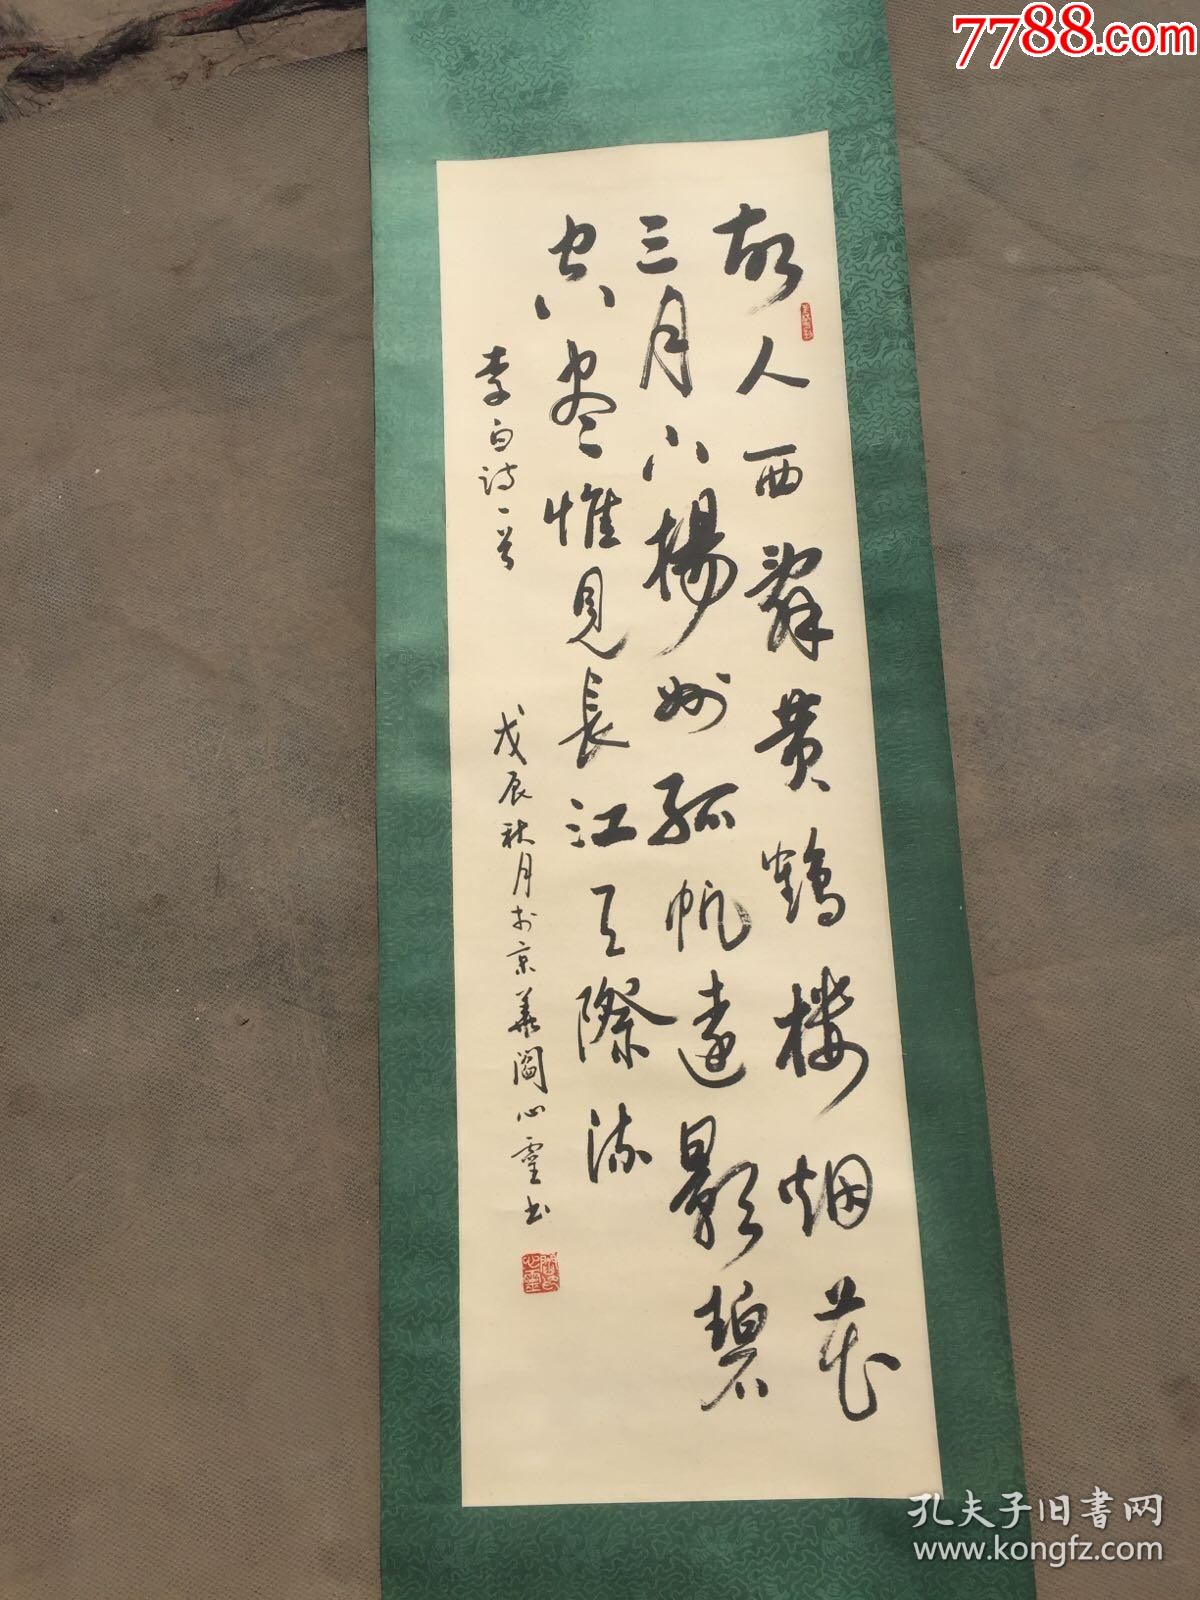 7788.com
故人西辞黄鹤楼烟花
三月下楊州孤帆遠影碧
空尽惟見長江天際流
李白诗一首
戊辰秋月於京華阎心靈书
孔夫子旧书网
www.kongfz.com